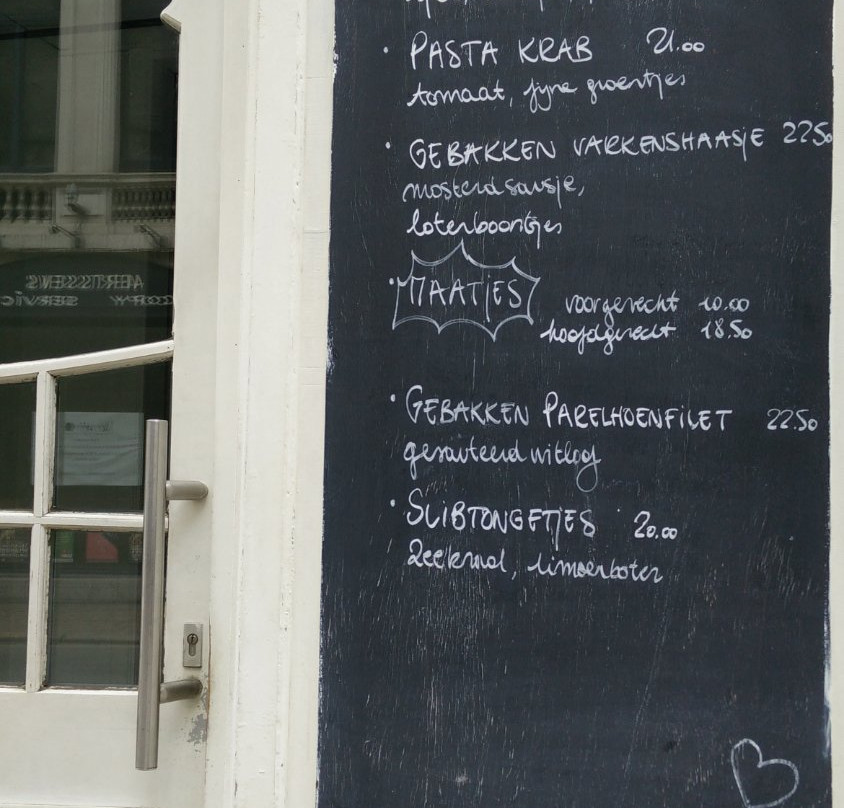 • PASTA KRAB 21.00
tomaat, fijne groentjes
• GEBAKKEN VARKENSHAASJE 22.50
mosterdsausje,
boterboontjes
• MAATJES voorgerecht 10.00
hoofdgerecht 18.50
• GEBAKKEN PARELHOENFILET 22.50
gesauteerd witlof
• SLIBTONGETJES 20.00
Zeekraal, limoenboter